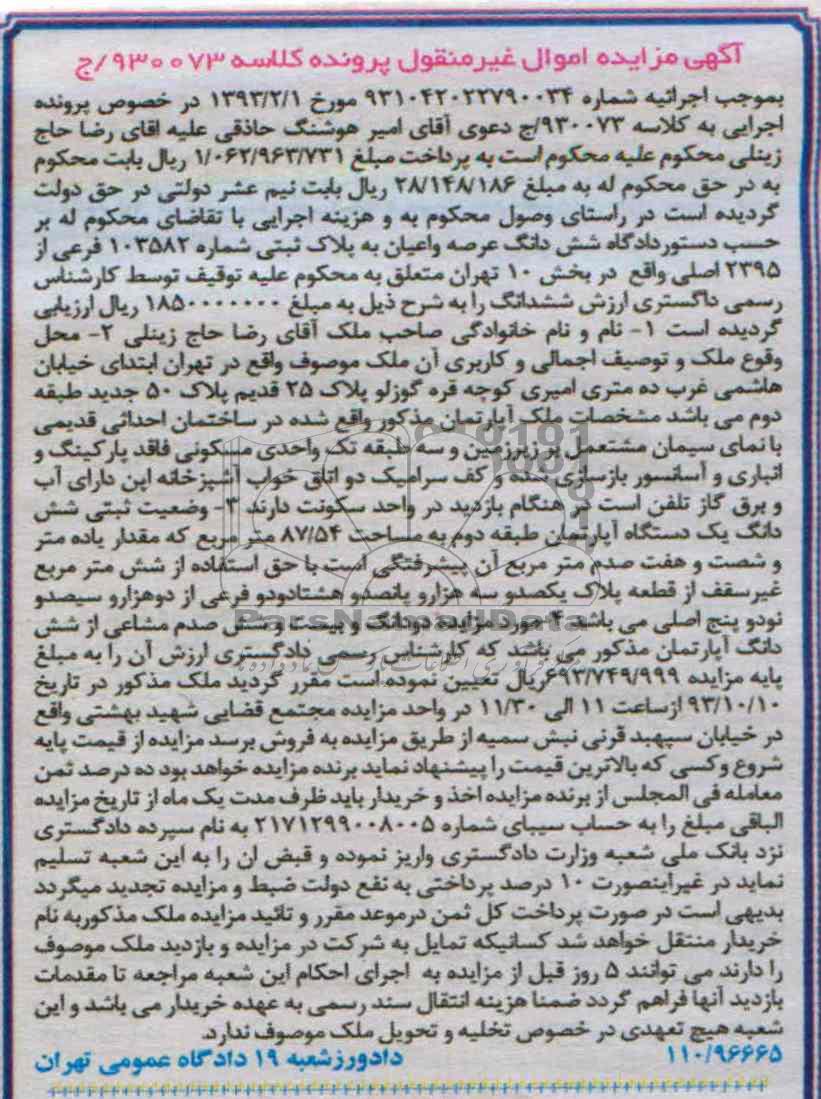 آگهی مزایده اموال غیرمنقول پرونده کلاسه ۹۳۰۰۷۳/ج
بموجب اجرائیه شماره ۹۳۱۰۴۲۰۲۲۷۹۰۰۳۴ مورخ ۱۳۹۳/۲/۱ در خصوص پرونده
اجرایی به کلاسه ۹۳۰۰۷۳/ج دعوی آقای امیر هوشنگ حاذقی علیه اقای رضا حاج
زینلی محکوم علیه محکوم است به پرداخت مبلغ ۱/۰۶۲/۹۶۳/۷۳۱ ریال بابت محکوم
به در حق محکوم له به مبلغ ۲۸/۱۴۸/۱۸۶ ریال بابت نیم عشر دولتی در حق دولت
گردیده است در راستای وصول محکوم به و هزینه اجرایی با تقاضای محکوم له بر
حسب دستوردادگاه شش دانگ عرصه واعیان به پلاک ثبتی شماره ۱۰۳۵۸۲ فرعی از
۲۳۹۵ اصلی واقع در بخش ۱۰ تهران متعلق به محکوم علیه توقیف توسط کارشناس
رسمی داگستری ارزش ششدانگ را به شرح ذیل به مبلغ ۱۸۵۰۰۰۰۰۰۰ ریال ارزیابی
گردیده است ۱- نام و نام خانوادگی صاحب ملک آقای رضا حاج زینلی ۲- محل
وقوع ملک و توصیف اجمالی و کاربری آن ملک موصوف واقع در تهران ابتدای خیابان
هاشمی غرب ده متری امیری کوچه قره گوزلو پلاک ۲۵ قدیم پلاک ۵۰ جدید طبقه
دوم می باشد مشخصات ملک آپارتمان مذکور واقع شده در ساختمان احداثی قدیمی
با نمای سیمان مشتعمل بر زیرزمین و سه طبقه تک واحدی مسکونی فاقد پارکینگ و
انباری و آسانسور بازسازی شده و کف سرامیک دو اتاق خواب آشپزخانه اپن دارای آب
و برق گاز تلفن است در هنگام بازدید در واحد سکونت دارند ۳- وضعیت ثبتی شش
دانگ یک دستگاه آپارتمان طبقه دوم به مساحت ۸۷/۵۴ متر مربع که مقدار یاده متر
و شصت و هفت صدم متر مربع آن پیشرفتگی است با حق استفاده از شش متر مربع
غیرسقف از قطعه پلاک یکصدو سه هزارو پانصدو هشتادودو فرعی از دوهزارو سیصدو
نودو پنج اصلی می باشد ۴-مورد مزایده دودانگ و بیست و شش صدم مشاعی از شش
دانگ آپارتمان مذکور می باشد که کارشناس رسمی دادگستری ارزش آن را به مبلغ
پایه مزایده ۶۹۳/۷۴۹/۹۹۹ریال تعیین نموده است مقرر گردید ملک مذکور در تاریخ
۹۳/۱۰/۱۰ ازساعت ۱۱ الی ۱۱/۳۰ در واحد مزایده مجتمع قضایی شهید بهشتی واقع
در خیابان سپهبد قرنی نبش سمیه از طریق مزایده به فروش برسد مزایده از قیمت پایه
شروع وکسی که بالاترین قیمت را پیشنهاد نماید برنده مزایده خواهد بود ده درصد ثمن
معامله فی المجلس از برنده مزایده اخذ و خریدار باید ظرف مدت یک ماه از تاریخ مزایده
الباقی مبلغ را به حساب سیبای شماره ۲۱۷۱۲۹۹۰۰۸۰۰۵ به نام سپرده دادگستری
نزد بانک ملی شعبه وزارت دادگستری واریز نموده و قبض ان را به این شعبه تسلیم
نماید در غیراینصورت ۱۰ درصد پرداختی به نفع دولت ضبط و مزایده تجدید میگردد
بدیهی است در صورت پرداخت کل ثمن درموعد مقرر و تائید مزایده ملک مذکوربه نام
خریدار منتقل خواهد شد کسانیکه تمایل به شرکت در مزایده و بازدید ملک موصوف
را دارند می توانند ۵ روز قبل از مزایده به اجرای احکام این شعبه مراجعه تا مقدمات
بازدید آنها فراهم گردد ضمنا هزینه انتقال سند رسمی به عهده خریدار می باشد و این
شعبه هیچ تعهدی در خصوص تخلیه و تحویل ملک موصوف ندارد.
۱۱۰/۹۶۶۶۵ دادورزشعبه ۱۹ دادگاه عمومی تهران
ParsNamadData